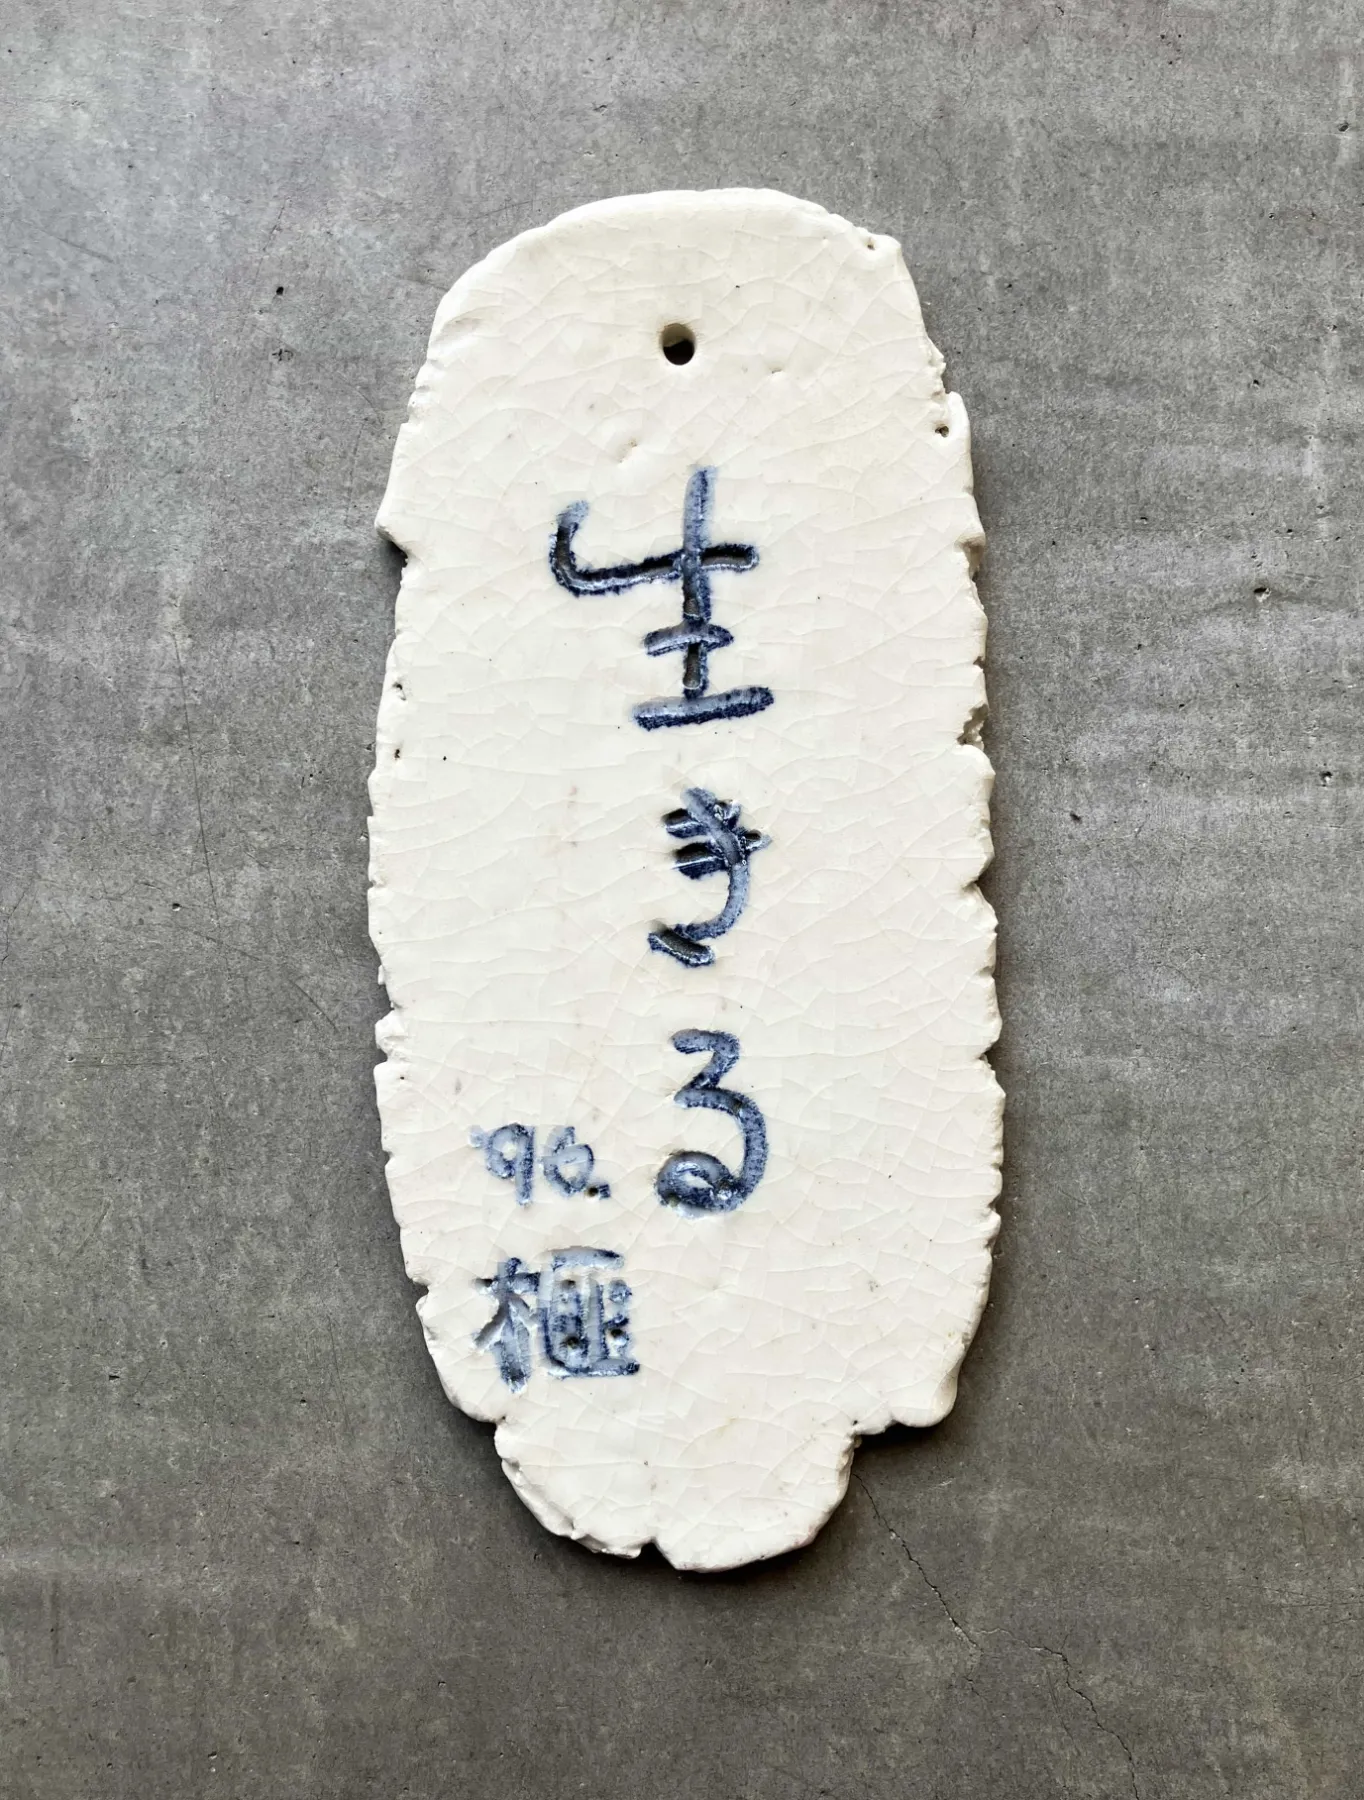 生きる
96.
榧